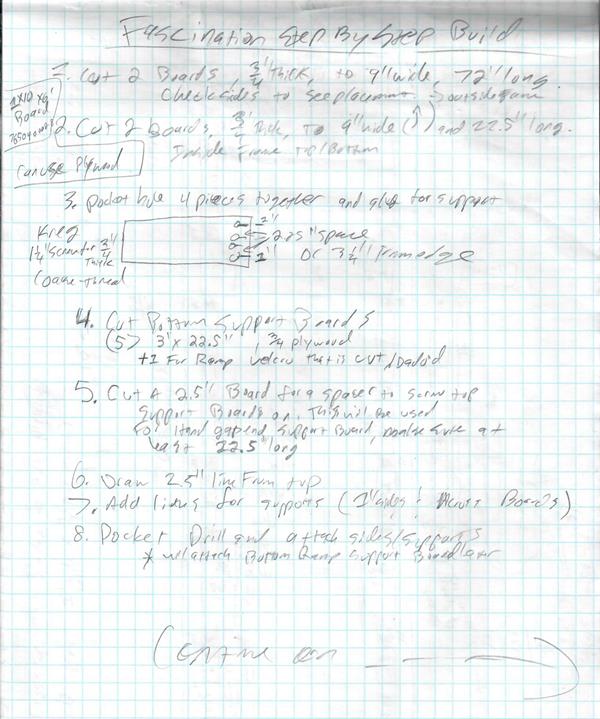 Fascination Step By Step Build
1. Cut 2 Boards, 3/4" thick, to 9" wide, 72" long.
Check sides to see placement. → outside frame
1x10 x 6'
Board
2. Cut 2 boards, 3/4" thick, to 9" wide (↑) and 22.5" long.
Inside Frame top/Bottom
Can use Plywood
3. Pocket hole 4 pieces together and glue for support
Kreg
1 1/4" Screw for 3/4"
thick
Coarse-thread
1"
2.25" space
1" or 3 1/4" from edge
4. Cut Bottom Support Boards
(5) 3" x 22.5", 3/4 plywood
+1 For Ramp that is cut/Dadoed
5. Cut A 2.5" Board for a spacer to screw top
Support Boards on. This will be used
For Hand gap end support Board, make sure at
least 22.5" long
6. Draw 2.5" line From top
7. Add lines for supports (1" sides Across Boards)
8. Pocket Drill and attach sides/supports
* will attach Bottom Ramp Support Board later
(Continue on →